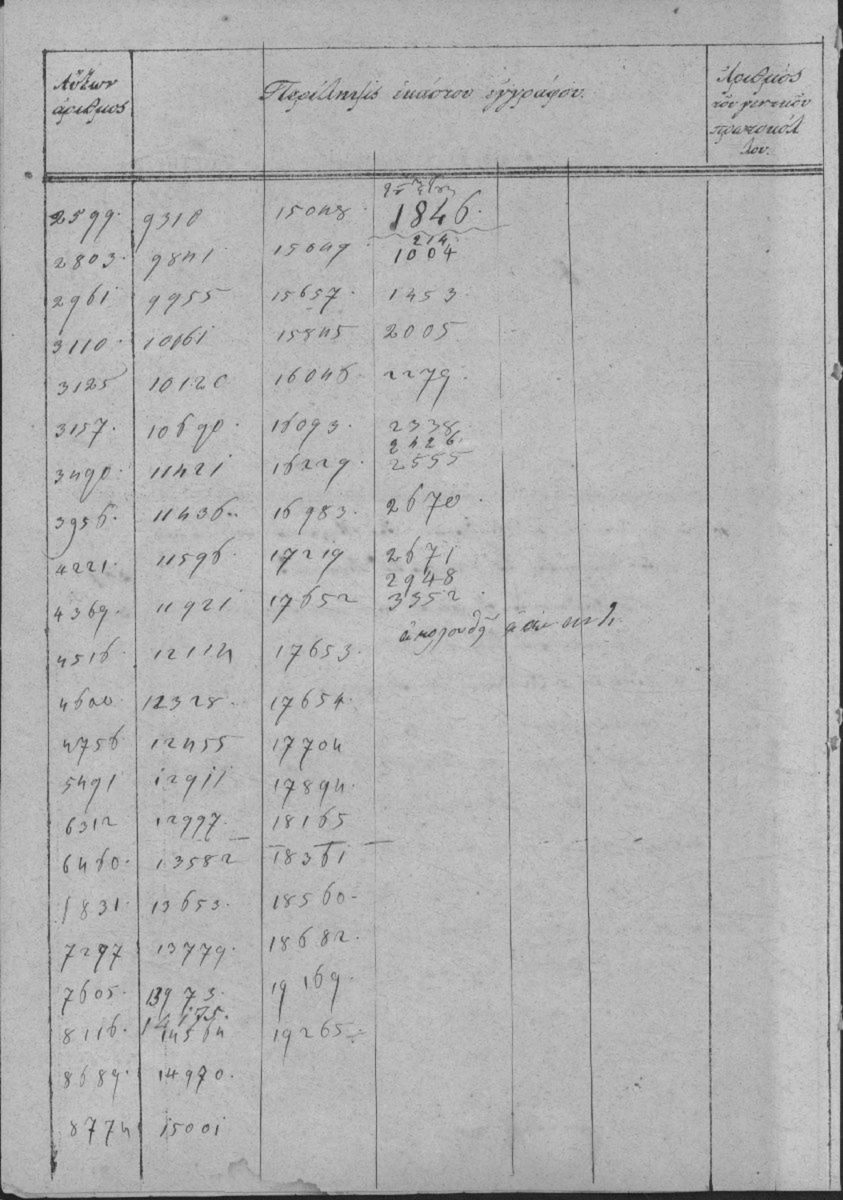 Αὔξων ἀριθμὸς
Περίληψις ἑκάστου ἐγγράφου.
Ἀριθμὸς τοῦ γενικοῦ πρωτοκόλλου.
2599. 9310 15048 1846.
2803. 9841 15649 214.
1004
2961 9955 15657. 1453.
3110. 10161 15845 2005
3125 10120 16046. 2279.
3157. 10690. 16093. 2338.
2426.
3490. 11421 16229. 2555
3956. 11436. 16983. 2670.
4221. 11596. 17219 2671
2948
4369. 11921 17652 3352.
4516. 12114 17653. ἀκολουθεῖ
4600. 12328. 17654.
4756 12455 17704
5491 12911 17894.
6312 12997. 18165
6460. 13582 18361
1831. 13653. 18560.
7297 13779. 18682.
7605. 13973. 19169.
14175.
8116. 14564 19265.
8689. 14970.
8774 15001